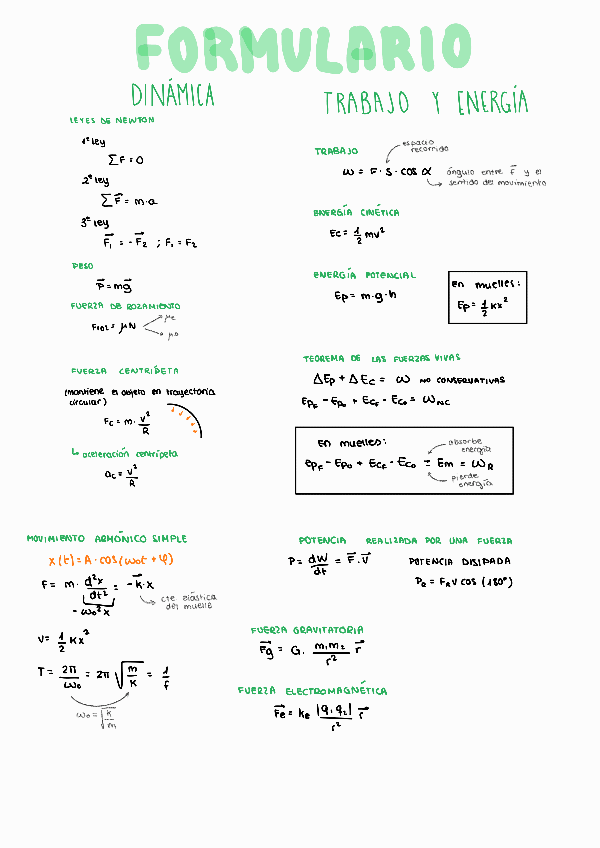 FORMULARIO
DINÁMICA
LEYES DE NEWTON
1ª ley
∑F = 0
2ª ley
∑F⃗ = m·a
3ª ley
F⃗₁ = -F⃗₂ ; F₁ = F₂
PESO
P⃗ = mg⃗
FUERZA DE ROZAMIENTO
Froz = μN
μe
μD
FUERZA CENTRÍPETA
(mantiene el objeto en trayectoria
circular)
Fc = m· v²/R
↳ aceleración centrípeta
ac = v²/R
TRABAJO Y ENERGÍA
TRABAJO
espacio
recorrido
W = F · S · COS α
ángulo entre F⃗ y el
sentido del movimiento
ENERGÍA CINÉTICA
Ec = 1/2 mv²
ENERGÍA POTENCIAL
Ep = m·g·h
en muelles:
Ep = 1/2 Kx²
TEOREMA DE LAS FUERZAS VIVAS
ΔEp + ΔEc = W NO CONSERVATIVAS
EpF - Epo + EcF - Eco = WNC
en muelles:
absorbe
energía
EpF - Epo + EcF - Eco = Em = WR
pierde
energía
MOVIMIENTO ARMÓNICO SIMPLE
x(t) = A·cos(ω₀t + φ)
F = m· d²x/dt² = -k⃗·x
-ω₀²x
cte elástica
del muelle
V = 1/2 Kx²
T = 2π/ω₀ = 2π √(m/K) = 1/f
ω₀ = √(k/m)
POTENCIA REALIZADA POR UNA FUERZA
P = dW/dt = F⃗·V⃗
POTENCIA DISIPADA
PR = FR V COS (180°)
FUERZA GRAVITATORIA
F⃗g = G· m₁m₂/r² r⃗
FUERZA ELECTROMAGNÉTICA
F⃗e = ke |q₁q₂|/r² r⃗